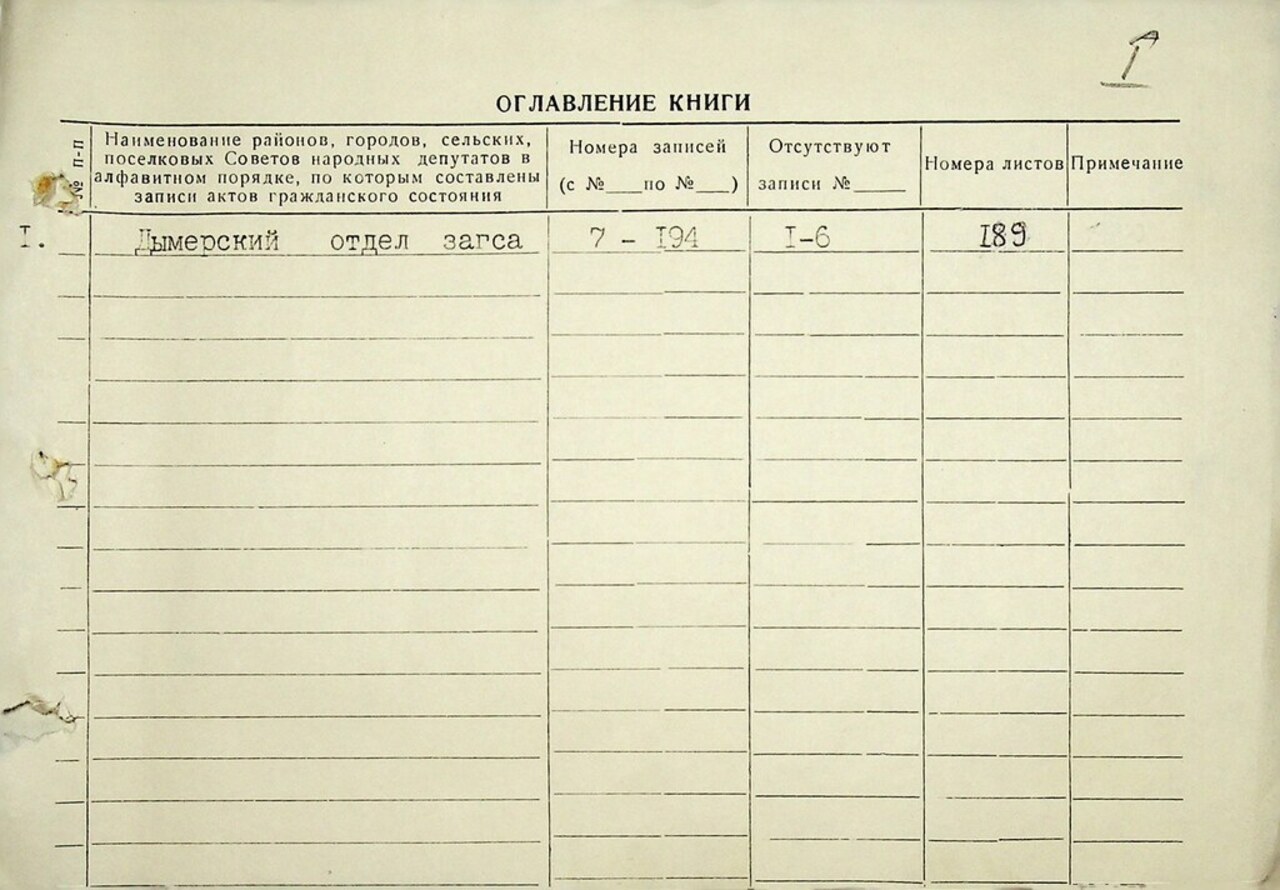 1
ОГЛАВЛЕНИЕ КНИГИ
№ п-п
Наименование районов, городов, сельских,
поселковых Советов народных депутатов в
алфавитном порядке, по которым составлены
записи актов гражданского состояния
Номера записей
(с №___по №___)
Отсутствуют
записи №_____
Номера листов
Примечание
I. Дымерский отдел загса 7 - I94 I-6 I89